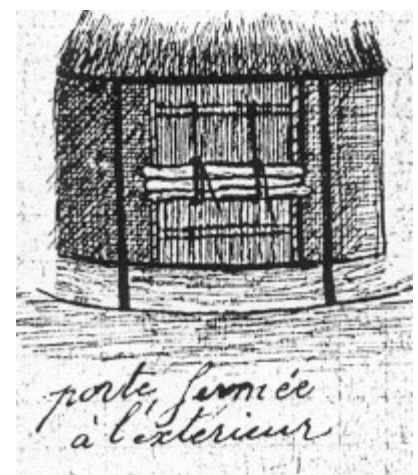 porte fermée
à l'extérieur